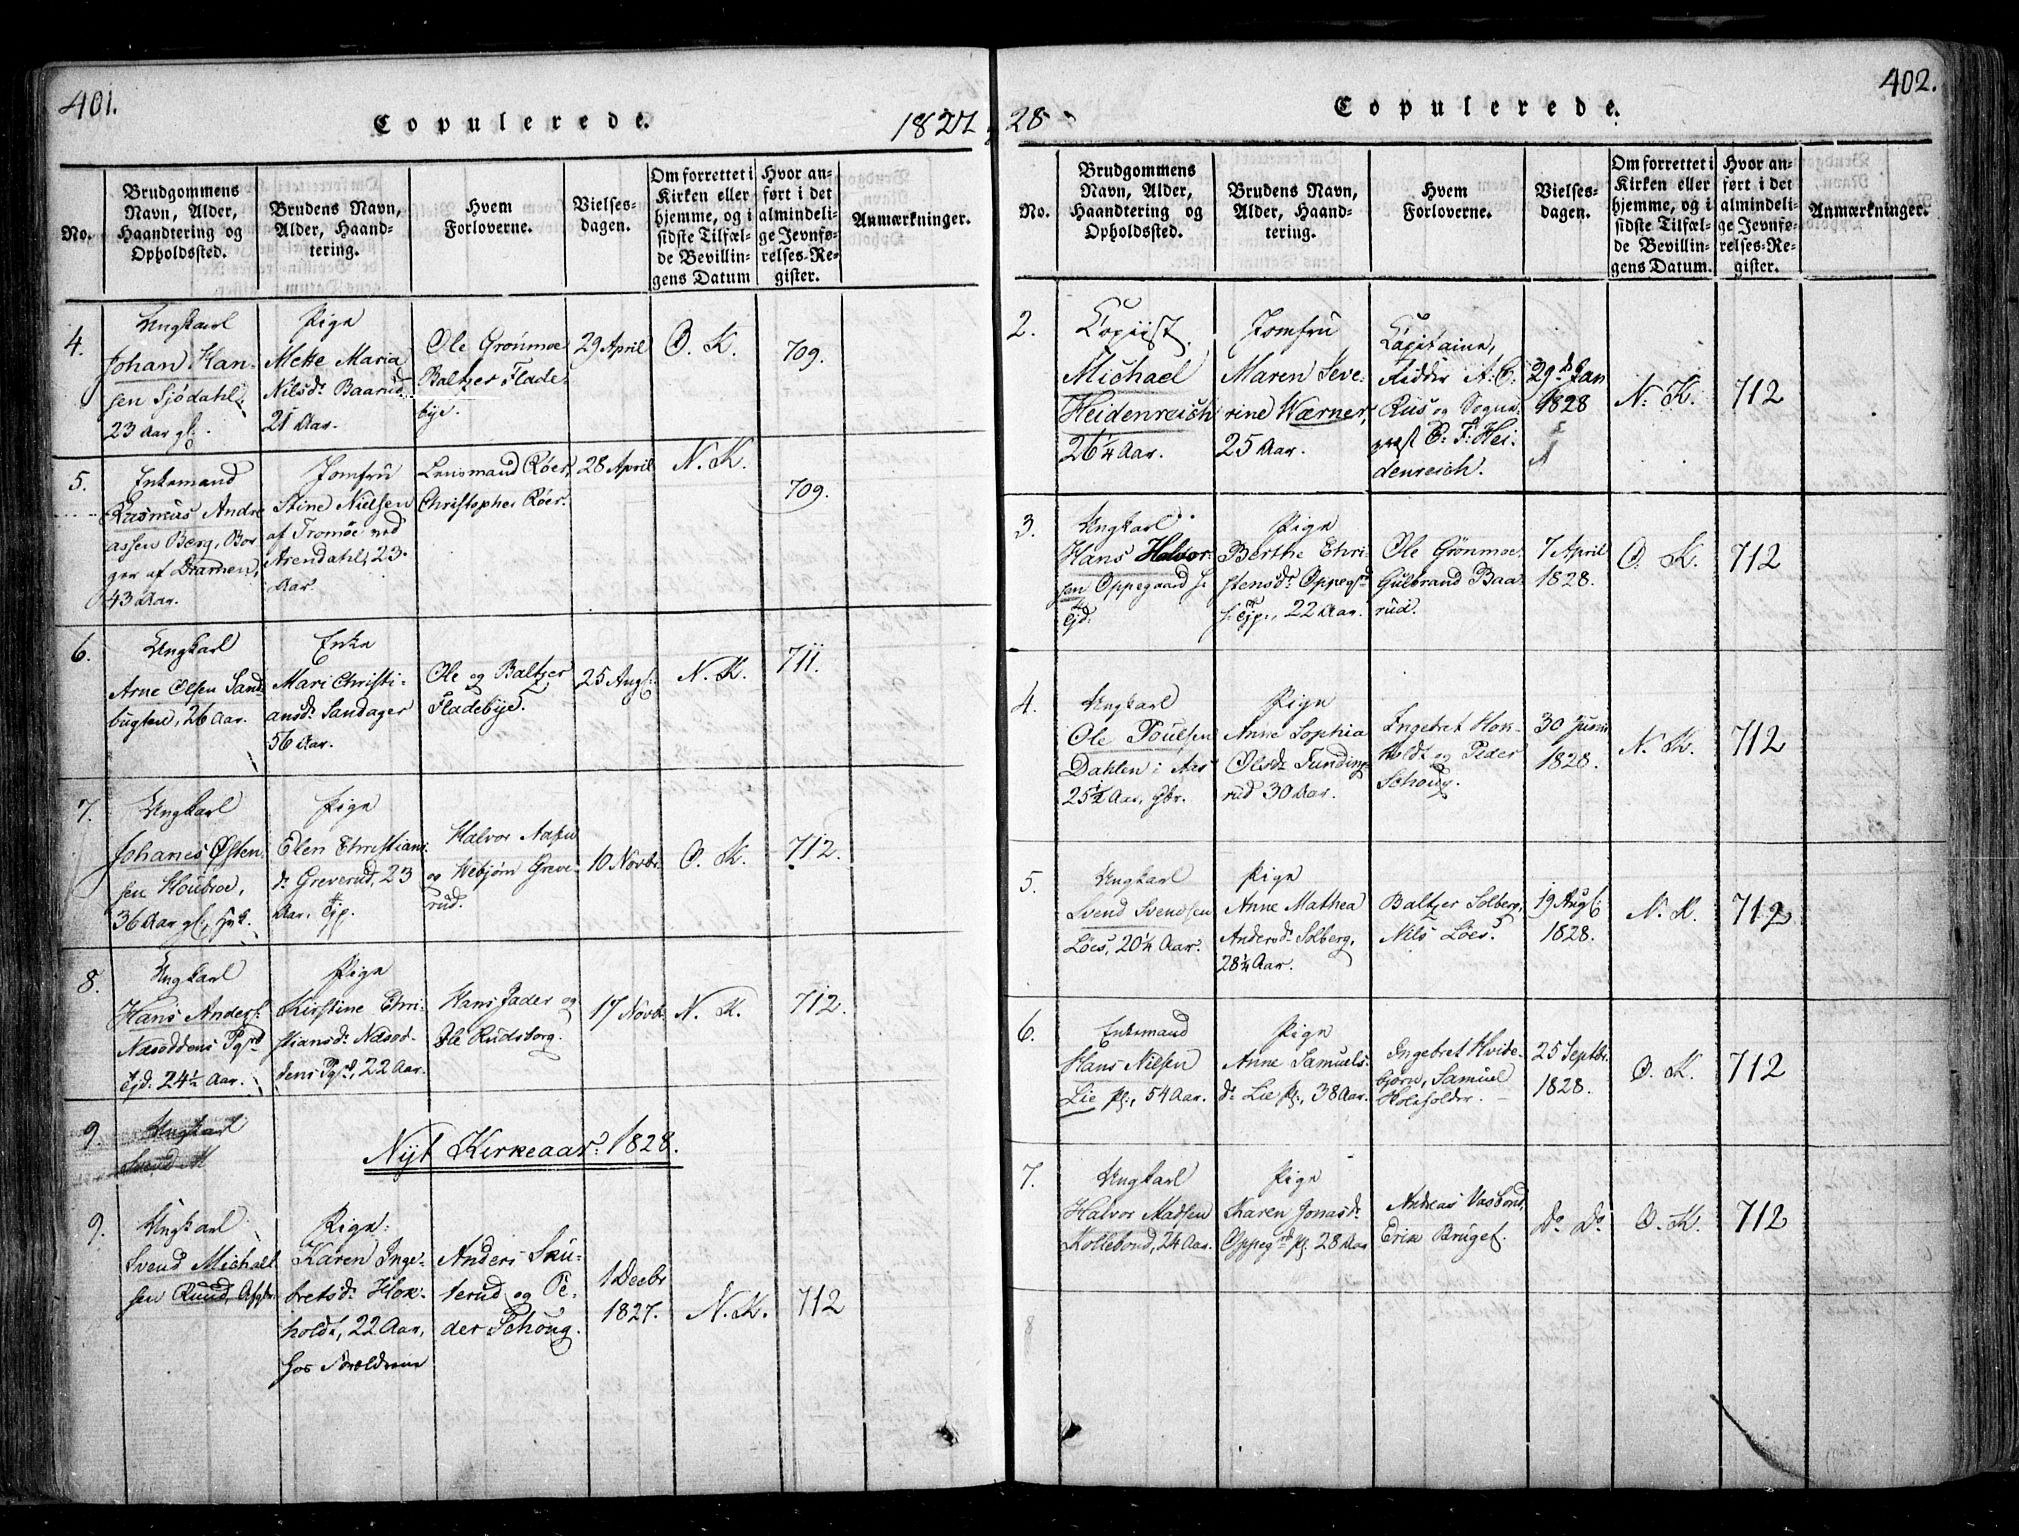 401.
Copulerede.
1827
No.
Brudgommens
Navn, Alder,
Haandtering og
Opholdssted.
Brudens Navn,
Alder, Haand-
tering.
Hvem
Forloverne.
Vielses-
dagen.
Om forrettet i
Kirken eller
hjemme, og i
sidste Tilfæl-
de Bevillin-
gens Datum
Hvor an-
ført i det
almindeli-
ge Jevnfø-
relses-Re-
gister.
Anmærkninger.
4.
Ungkarl
Johan Han-
sen Sjödahl,
23 Aar gl.
Pige
Mette Maria
Nilsdr Baarud
21 Aar.
Ole Grönmoe
Baltzer Flade-
bye.
29 April
O. K.
709.
5.
Enkemand
Rasmus Andre
assen Berg, Bor
ger af Dramen,
43 Aar.
Jomfru
Stine Nielsen
af Tromöe ved
Arendahl, 23
Aar.
Lensmand Röer,
Christopher Röer.
28 April
N. K.
709.
6.
Ungkarl
Arne Olsen Sand
bugten, 26 Aar.
Enke
Mari Christi-
ansdr Sandager
56 Aar.
Ole og Baltzer
Fladebye.
25 Augs:
N. K.
711.
7.
Ungkarl
Johanes Østen-
sen Houbroe,
36 Aar gl,
Pige
Elen Christians
dr Greverud, 23
Aar. Tj.
Halvor Aasen
og Webjørn Greve-
rud.
10 Novbr.
O. K.
712.
8.
Ungkarl
Hans Anders:
Næsoddens Pgrd
Tjd. 24½ Aar.
Pige
Kirstine Chri-
stiansdr Næsod-
dens Pgrd, 22 Aar.
Hans Jader og
Ole Rudsborg.
17 Novbr.
N. K.
712.
9.
Ungkarl
Svend M
Nyt Kirkeaar. 1828.
9.
Ungkarl
Svend Michael
sen Ruud,
Pige.
Karen Inge-
bretsdr Hok-
holdt, 22 Aar,
hos Forældrene
Anders Sku-
terud og Pe-
der Schoug.
1 Decbr
1827.
N. K.
712
28
402.
Copulerede.
No.
Brudgommens
Navn, Alder,
Haandtering og
Opholdssted.
Brudens Navn,
Alder, Haand-
tering.
Hvem
Forloverne.
Vielses-
dagen.
Om forrettet i
Kirken eller
hjemme, og i
sidste Tilfæl-
de Bevillin-
gens Datum.
Hvor an-
ført i det
almindeli-
ge Jevnfø-
relses-Re-
gister.
Anmærkninger.
2.
Copiist
Michael
Heidenreich
26¼ Aar.
Jomfru
Maren Seve-
rine Wærner,
25 Aar.
Capitaine,
Ridder A: C:
Riis og Sogne-
præst C: F: Hei-
denreich.
29d Jan
1828
N. K.
712
3.
Ungkarl
Hans Halvor-
sen Oppegaard
Tjd.
Pige
Berthe Chri-
stensdr Oppegrd
Tj., 22 Aar.
Ole Grönmoe.
Gulbrand Baa
rud.
7 April
1828.
O. K.
712
4.
Ungkarl
Ole Poulsen
Dahlen i Aas
25½ Aar, Gbr.
Pige
Anne Sophia
Olsdr Tunding-
rud 30 Aar.
Ingebret Hok-
holdt og Peder
Schoug.
30 Juni
1828.
N. K.
712
5.
Ungkarl
Svend Svendsen
Löes, 20¼ Aar.
Pige
Anne Mathea
Andersdr Solberg,
28¼ Aar.
Baltzer Solberg,
Nils Löes.
19 Augs:
1828.
N. K.
712
6.
Enkemand
Hans Nilsen
Lie pl., 54 Aar.
Pige
Anne Samuels-
dr Lie pl., 38 Aar.
Ingebret Hvide-
bjørn, Samuel
25 Septbr.
1828.
O. K.
712
7.
Ungkarl
Halvor Madsen
Kollebond, 24 Aar.
Pige
Karen Jonasdr
Oppegrd pl. 28 Aar
Andreas Vasbond,
Erik Bruget.
Do Do
O. K.
712
8